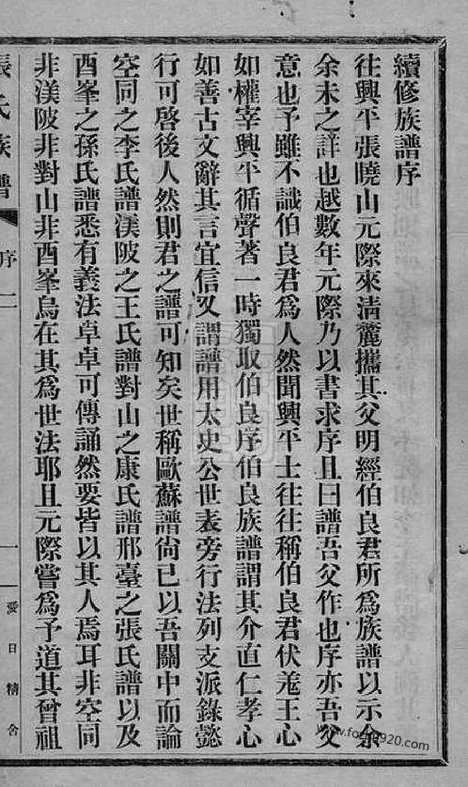 續修族譜序
往興平張曉山元際來清麓攜其父明經伯良君所爲族譜以示余
余未之詳也越數年元際乃以書求序且曰譜吾父作也序亦吾父
意也予雖不識伯良君爲人然聞興平士往往稱伯良君伏羗王心
如權宰興平循聲著一時獨取伯良序伯良族譜謂其介直仁孝心
如善古文辭其言宜信又謂譜用太史公世表旁行法列支派錄懿
行可啓後人然則君之譜可知矣世稱歐蘇譜尚已以吾關中而論
空同之李氏譜渼陂之王氏譜對山之康氏譜邢臺之張氏譜以及
酉峯之孫氏譜悉有義法卓卓可傳誦然要皆以其人焉耳非空同
非渼陂非對山非酉峯烏在其爲世法耶且元際嘗爲予道其曾祖
張氏族譜 序 二 一 愛日精舍